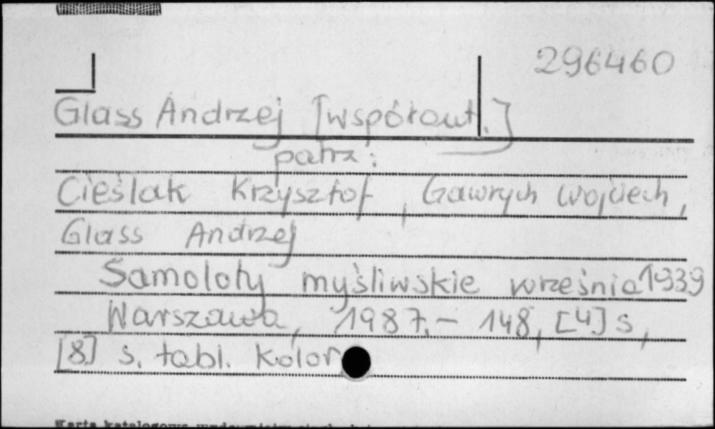 296460
Glass Andrzej [współaut.]
patrz:
Cieślak Krzysztof, Gawrych Wojciech,
Glass Andrzej
Samoloty myśliwskie września 1939
Warszawa, 1987. - 148, [4] s,
[8] s. tabl. kolor
Karta katalogowa